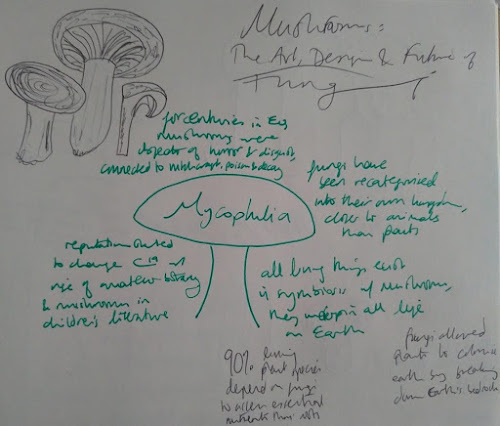 Mushrooms:
The Art, Design & Future of
Fungi
for centuries in Eng
mushrooms were
objects of horror & disgust,
connected to witchcraft, poison & decay
fungi have
been recategorised
into their own kingdom,
closer to animals
than plants
Mycophilia
reputation started
to change C19
rise of amateur botany
& mushrooms in
children's literature
all living things exist
in symbiosis mushrooms,
they underpin all life
on Earth
90% living
plant species
depend on fungi
to access essential
nutrients their roots
fungi allowed
plants to colonise
earth by breaking
down Earth's bedrock